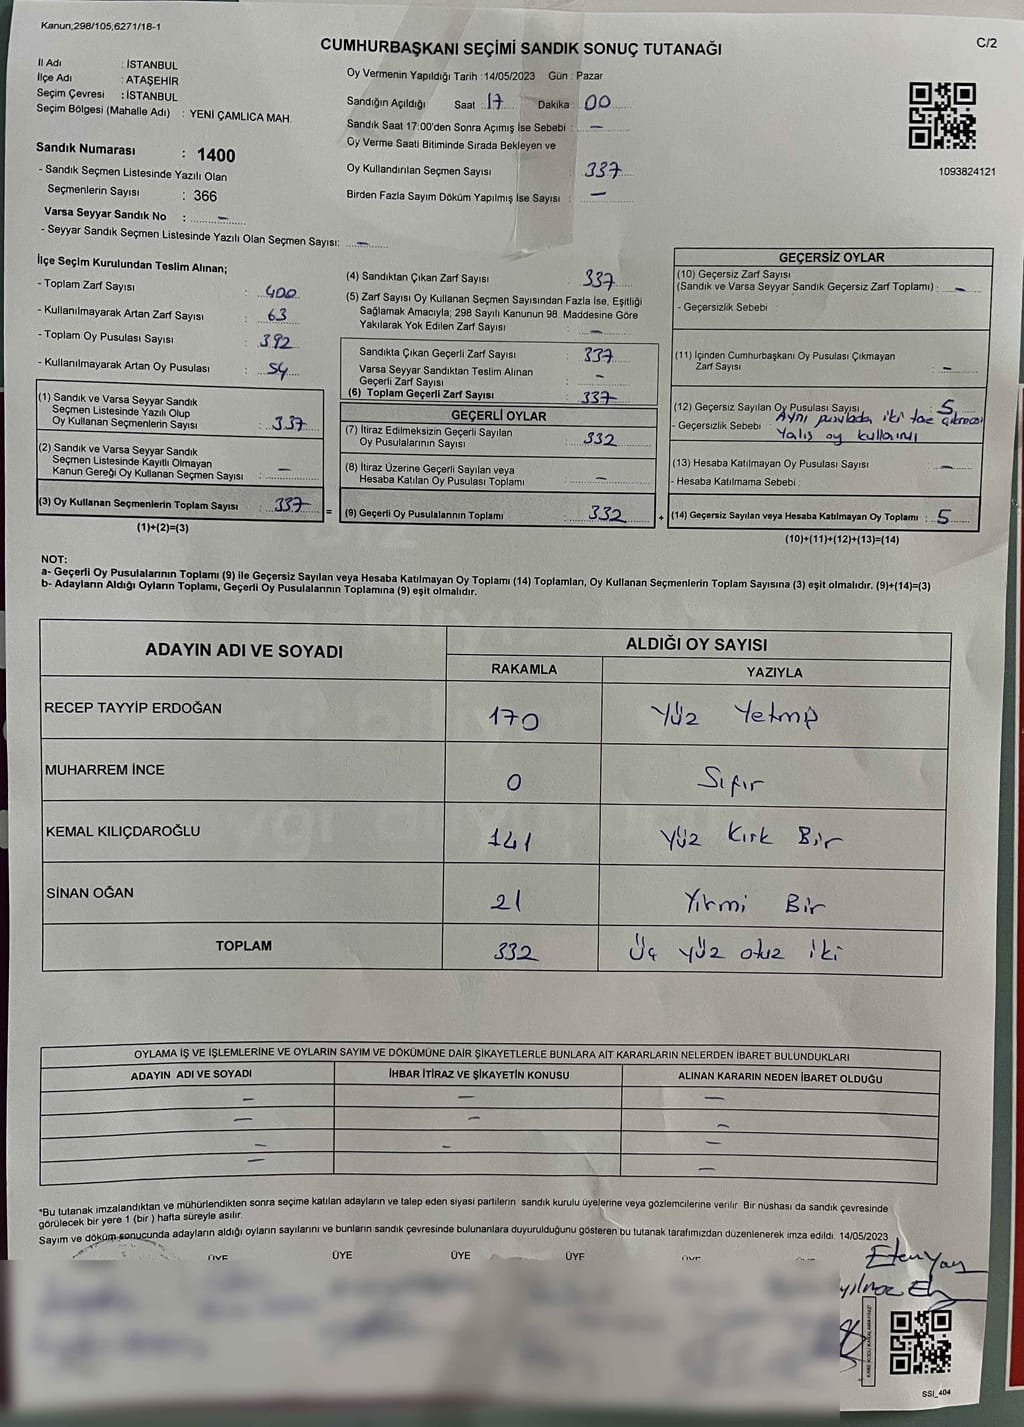 Kanun;298/105,6271/18-1
C/2
CUMHURBAŞKANI SEÇİMİ SANDIK SONUÇ TUTANAĞI
İl Adı : İSTANBUL
İlçe Adı : ATAŞEHİR
Seçim Çevresi : İSTANBUL
Seçim Bölgesi (Mahalle Adı) : YENİ ÇAMLICA MAH.
Sandık Numarası : 1400
- Sandık Seçmen Listesinde Yazılı Olan
Seçmenlerin Sayısı : 366
Varsa Seyyar Sandık No : –
- Seyyar Sandık Seçmen Listesinde Yazılı Olan Seçmen Sayısı: –
Oy Vermenin Yapıldığı Tarih :14/05/2023 Gün : Pazar
Sandığın Açıldığı Saat : 17 Dakika : 00
Sandık Saat 17:00'den Sonra Açımış İse Sebebi : –
Oy Verme Saati Bitiminde Sırada Bekleyen ve
Oy Kullandırılan Seçmen Sayısı : 337
Birden Fazla Sayım Döküm Yapılmış İse Sayısı : –
1093824121
İlçe Seçim Kurulundan Teslim Alınan;
- Toplam Zarf Sayısı : 400
- Kullanılmayarak Artan Zarf Sayısı : 63
- Toplam Oy Pusulası Sayısı : 392
- Kullanılmayarak Artan Oy Pusulası : 54
(1) Sandık ve Varsa Seyyar Sandık
Seçmen Listesinde Yazılı Olup
Oy Kullanan Seçmenlerin Sayısı : 337
(2) Sandık ve Varsa Seyyar Sandık
Seçmen Listesinde Kayıtlı Olmayan
Kanun Gereği Oy Kullanan Seçmen Sayısı : –
(3) Oy Kullanan Seçmenlerin Toplam Sayısı : 337 =
(1)+(2)=(3)
(4) Sandıktan Çıkan Zarf Sayısı : 337
(5) Zarf Sayısı Oy Kullanan Seçmen Sayısından Fazla İse, Eşitliği
Sağlamak Amacıyla; 298 Sayılı Kanunun 98. Maddesine Göre
Yakılarak Yok Edilen Zarf Sayısı : –
Sandıkta Çıkan Geçerli Zarf Sayısı : 337
Varsa Seyyar Sandıktan Teslim Alınan
Geçerli Zarf Sayısı : –
(6) Toplam Geçerli Zarf Sayısı : 337
GEÇERLİ OYLAR
(7) İtiraz Edilmeksizin Geçerli Sayılan
Oy Pusulalarının Sayısı : 332
(8) İtiraz Üzerine Geçerli Sayılan veya
Hesaba Katılan Oy Pusulası Toplamı : –
(9) Geçerli Oy Pusulalarının Toplamı : 332 +
GEÇERSİZ OYLAR
(10) Geçersiz Zarf Sayısı
(Sandık ve Varsa Seyyar Sandık Geçersiz Zarf Toplamı) : –
- Geçersizlik Sebebi :
(11) İçinden Cumhurbaşkanı Oy Pusulası Çıkmayan
Zarf Sayısı : –
(12) Geçersiz Sayılan Oy Pusulası Sayısı : 5
- Geçersizlik Sebebi : Aynı pusulada iki tane çıkması
Yalış oy kullanımı
(13) Hesaba Katılmayan Oy Pusulası Sayısı : –
- Hesaba Katılmama Sebebi :
(14) Geçersiz Sayılan veya Hesaba Katılmayan Oy Toplamı : 5
(10)+(11)+(12)+(13)=(14)
NOT:
a- Geçerli Oy Pusulalarının Toplamı (9) ile Geçersiz Sayılan veya Hesaba Katılmayan Oy Toplamı (14) Toplamları, Oy Kullanan Seçmenlerin Toplam Sayısına (3) eşit olmalıdır. (9)+(14)=(3)
b- Adayların Aldığı Oyların Toplamı, Geçerli Oy Pusulalarının Toplamına (9) eşit olmalıdır.
ADAYIN ADI VE SOYADI
ALDIĞI OY SAYISI
RAKAMLA YAZIYLA
RECEP TAYYİP ERDOĞAN 170 Yüz Yetmiş
MUHARREM İNCE 0 Sıfır
KEMAL KILIÇDAROĞLU 141 Yüz Kırk Bir
SİNAN OĞAN 21 Yirmi Bir
TOPLAM 332 Üç yüz otuz iki
OYLAMA İŞ VE İŞLEMLERİNE VE OYLARIN SAYIM VE DÖKÜMÜNE DAİR ŞİKAYETLERLE BUNLARA AİT KARARLARIN NELERDEN İBARET BULUNDUKLARI
ADAYIN ADI VE SOYADI İHBAR İTİRAZ VE ŞİKAYETİN KONUSU ALINAN KARARIN NEDEN İBARET OLDUĞU
– – –
– – –
– – –
– –
*Bu tutanak imzalandıktan ve mühürlendikten sonra seçime katılan adayların ve talep eden siyasi partilerin sandık kurulu üyelerine veya gözlemcilerine verilir. Bir nüshası da sandık çevresinde
görülecek bir yere 1 (bir ) hafta süreyle asılır.
Sayım ve döküm sonucunda adayların aldığı oyların sayılarını ve bunların sandık çevresinde bulunanlara duyurulduğunu gösteren bu tutanak tarafımızdan düzenlenerek imza edildi. 14/05/2023
ÜYE ÜYE ÜYE ÜYE ÜYE
SSI_404